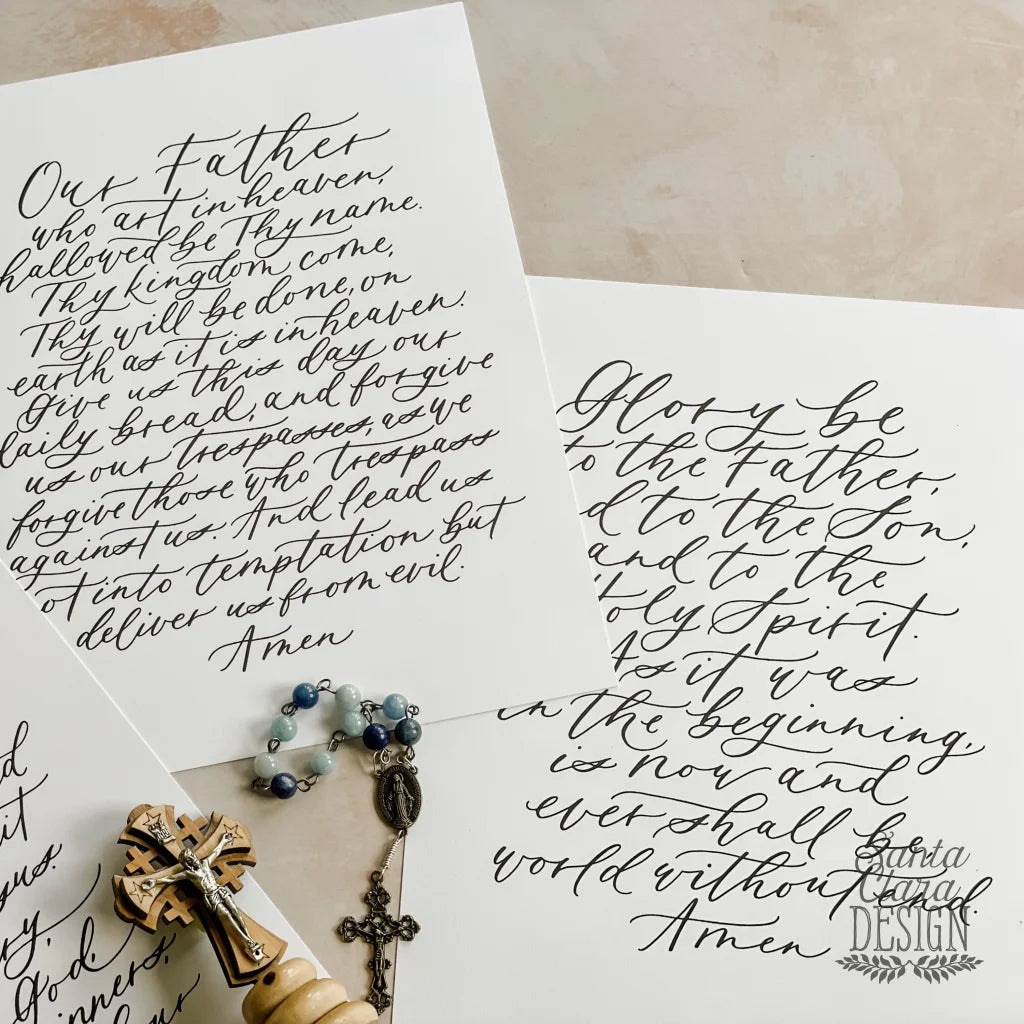 Our Father
who art in heaven,
hallowed be Thy name.
Thy kingdom come,
Thy will be done, on
earth as it is in heaven.
Give us this day our
daily bread, and forgive
us our trespasses, as we
forgive those who trespass
against us. And lead us
ot into temptation but
deliver us from evil.
Amen
Glory be
to the Father,
d to the Son,
and to the
Holy Spirit.
As it was
in the beginning,
is now and
ever shall be
world without end.
Amen
d
it
gus.
ry,
God,
inners,
our
Santa
Clara
DESIGN